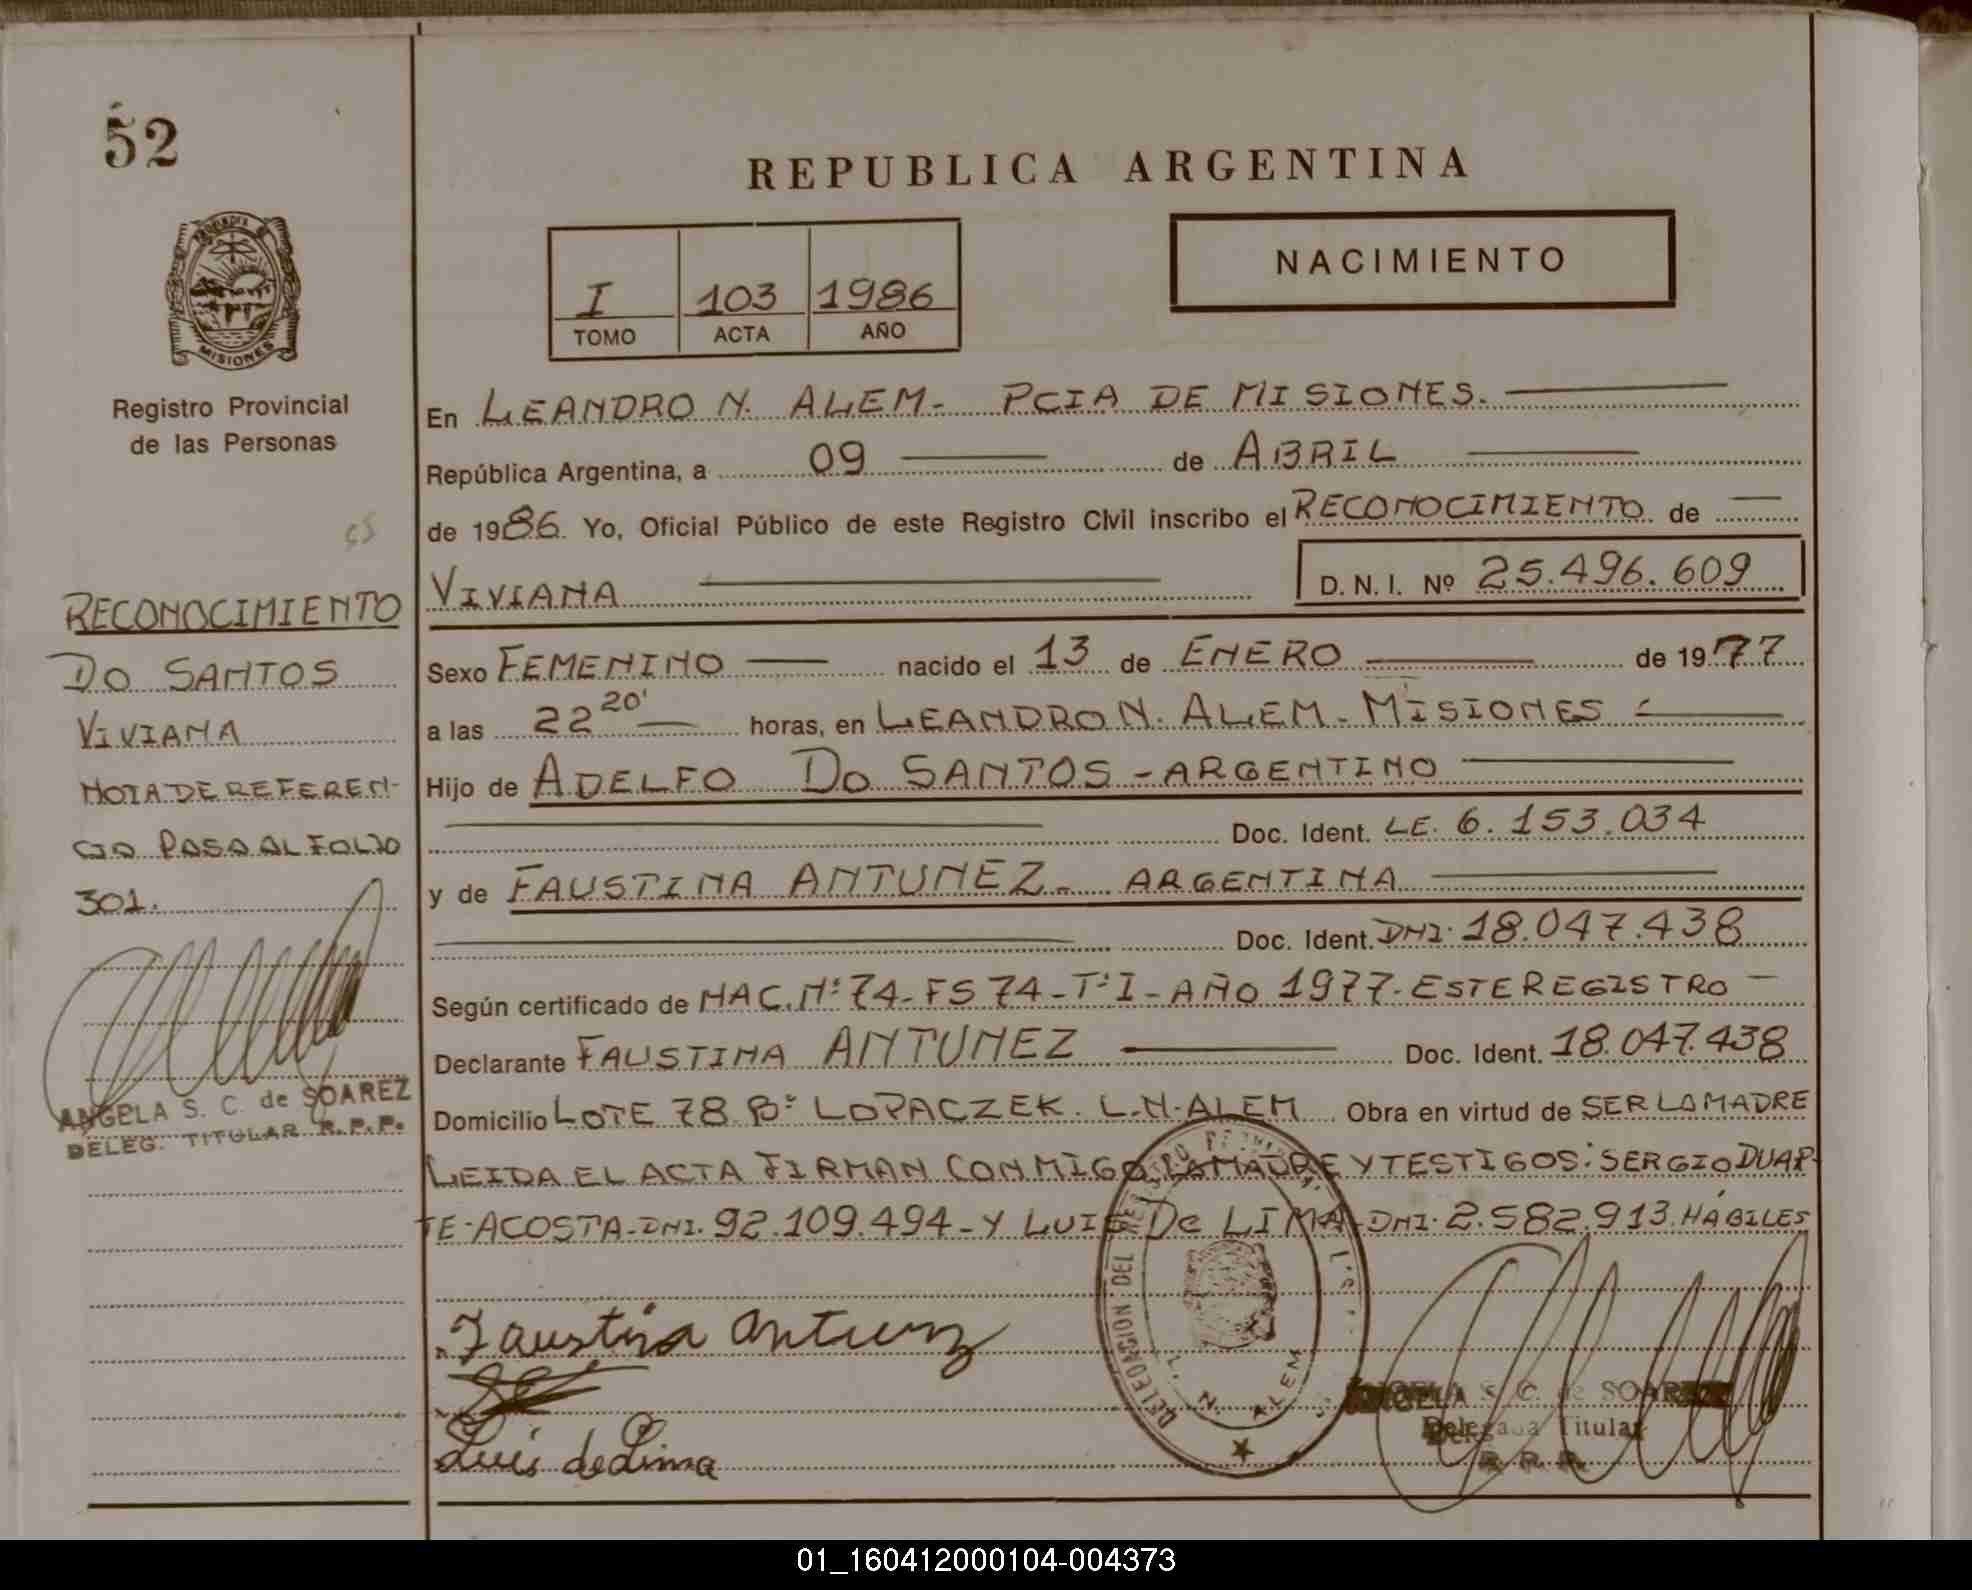 52
REPUBLICA ARGENTINA
I 103 1986
TOMO ACTA AÑO
NACIMIENTO
MISIONES
Registro Provincial
de las Personas
RECONOCIMIENTO
DO SANTOS
VIVIANA
NOTA DE REFEREN-
CIA PASA AL FOLIO
301.
ANGELA S. C. de SOAREZ
DELEG. TITULAR R.P.P.
En LEANDRO N. ALEM- PCIA DE MISIONES.
República Argentina, a 09 de ABRIL
de 1986. Yo, Oficial Público de este Registro Civil inscribo el RECONOCIMIENTO de
VIVIANA D.N.I. Nº 25.496.609
Sexo FEMENINO nacido el 13 de ENERO de 1977
a las 22 20' horas, en LEANDRO N. ALEM - MISIONES
Hijo de ADELFO DO SANTOS - ARGENTINO
Doc. Ident. LE. 6.153.034
y de FAUSTINA ANTUNEZ - ARGENTINA
Doc. Ident. DNI. 18.047.438
Según certificado de NAC. Nº 74 - FS 74 - Tº I - AÑO 1977 - ESTE REGISTRO
Declarante FAUSTINA ANTUNEZ Doc. Ident. 18.047.438
Domicilio LOTE 78 Bº LOPACZEK. L.N. ALEM Obra en virtud de SER LA MADRE
LEIDA EL ACTA FIRMAN CONMIGO LA MADRE Y TESTIGOS: SERGIO DUAR-
TE - ACOSTA - DNI. 92.109.494 - Y LUIS De LIMA - DNI. 2.582.913. HÁBILES
Faustina Antunez
Luis de Lima
DELEGACION DEL REGISTRO
L. N. ALEM
ANGELA S. C. de SOAREZ
Delegada Titular
R. P. P.
01_160412000104-004373